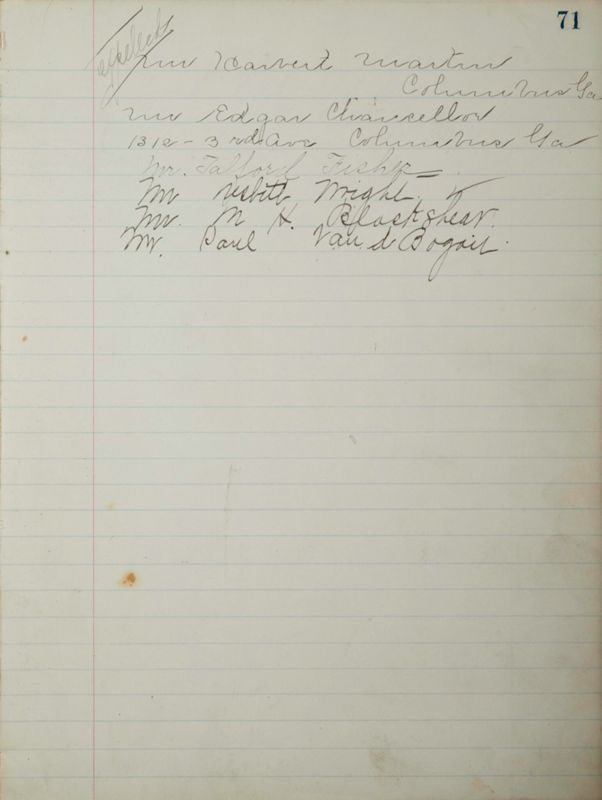 71
expelled
Mr Harvert Martin
Columbus Ga
Mr Edgar Chancellor
1312 - 3rd Ave Columbus Ga
Mr. Talford Fisher
Mr Nsbitt Wright.
Mr. N H. Blackshear.
Mr. Paul Van d Bogart.